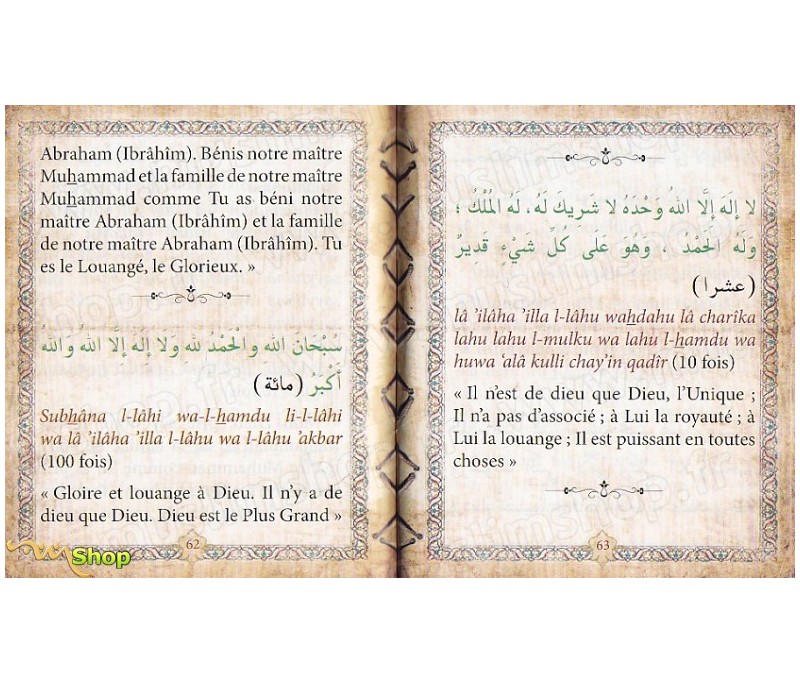 Abraham (Ibrâhîm). Bénis notre maître
Muhammad et la famille de notre maître
Muhammad comme Tu as béni notre
maître Abraham (Ibrâhîm) et la famille
de notre maître Abraham (Ibrâhîm). Tu
es le Louangé, le Glorieux. »
سُبْحَانَ اللهِ وَالْحَمْدُ للهِ وَلَا إِلَهَ إِلَّا اللهُ وَاللهُ
أَكْبَرُ (مائة)
Subhâna l-lâhi wa-l-hamdu li-l-lâhi
wa lâ ’ilâha ’illa l-lâhu wa l-lâhu ’akbar
(100 fois)
« Gloire et louange à Dieu. Il n’y a de
dieu que Dieu. Dieu est le Plus Grand »
62
Shop
لا إِلَهَ إِلَّا اللهُ وَحْدَهُ لا شَرِيكَ لَهُ، لَهُ المُلْكُ ؛
وَلَهُ الْحَمْدُ ، وَهُوَ عَلَى كُلِّ شَيْءٍ قَدِيرٌ
(عشرا)
lâ ’ilâha ’illa l-lâhu wahdahu lâ charîka
lahu lahu l-mulku wa lahu l-hamdu wa
huwa ‘alâ kulli chay’in qadîr (10 fois)
« Il n’est de dieu que Dieu, l’Unique ;
Il n’a pas d’associé ; à Lui la royauté ; à
Lui la louange ; Il est puissant en toutes
choses »
63